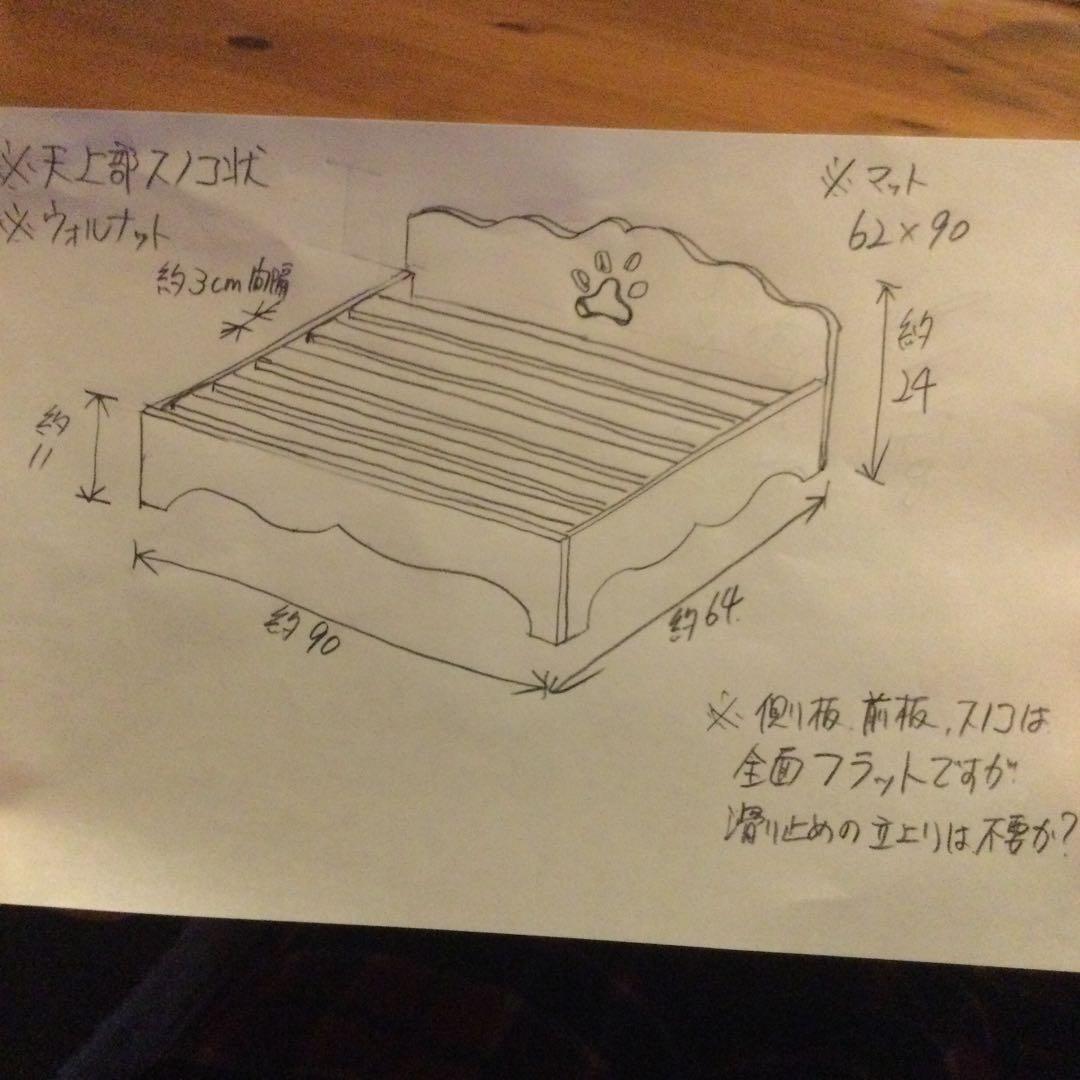 ※天上部スノコ状
※ウォルナット
約3cm間隔
※マット
62×90
約
24
約
11
約90
約64
※側り板.前板,スノコは
全面フラットですが
滑り止めの立上りは不要か?